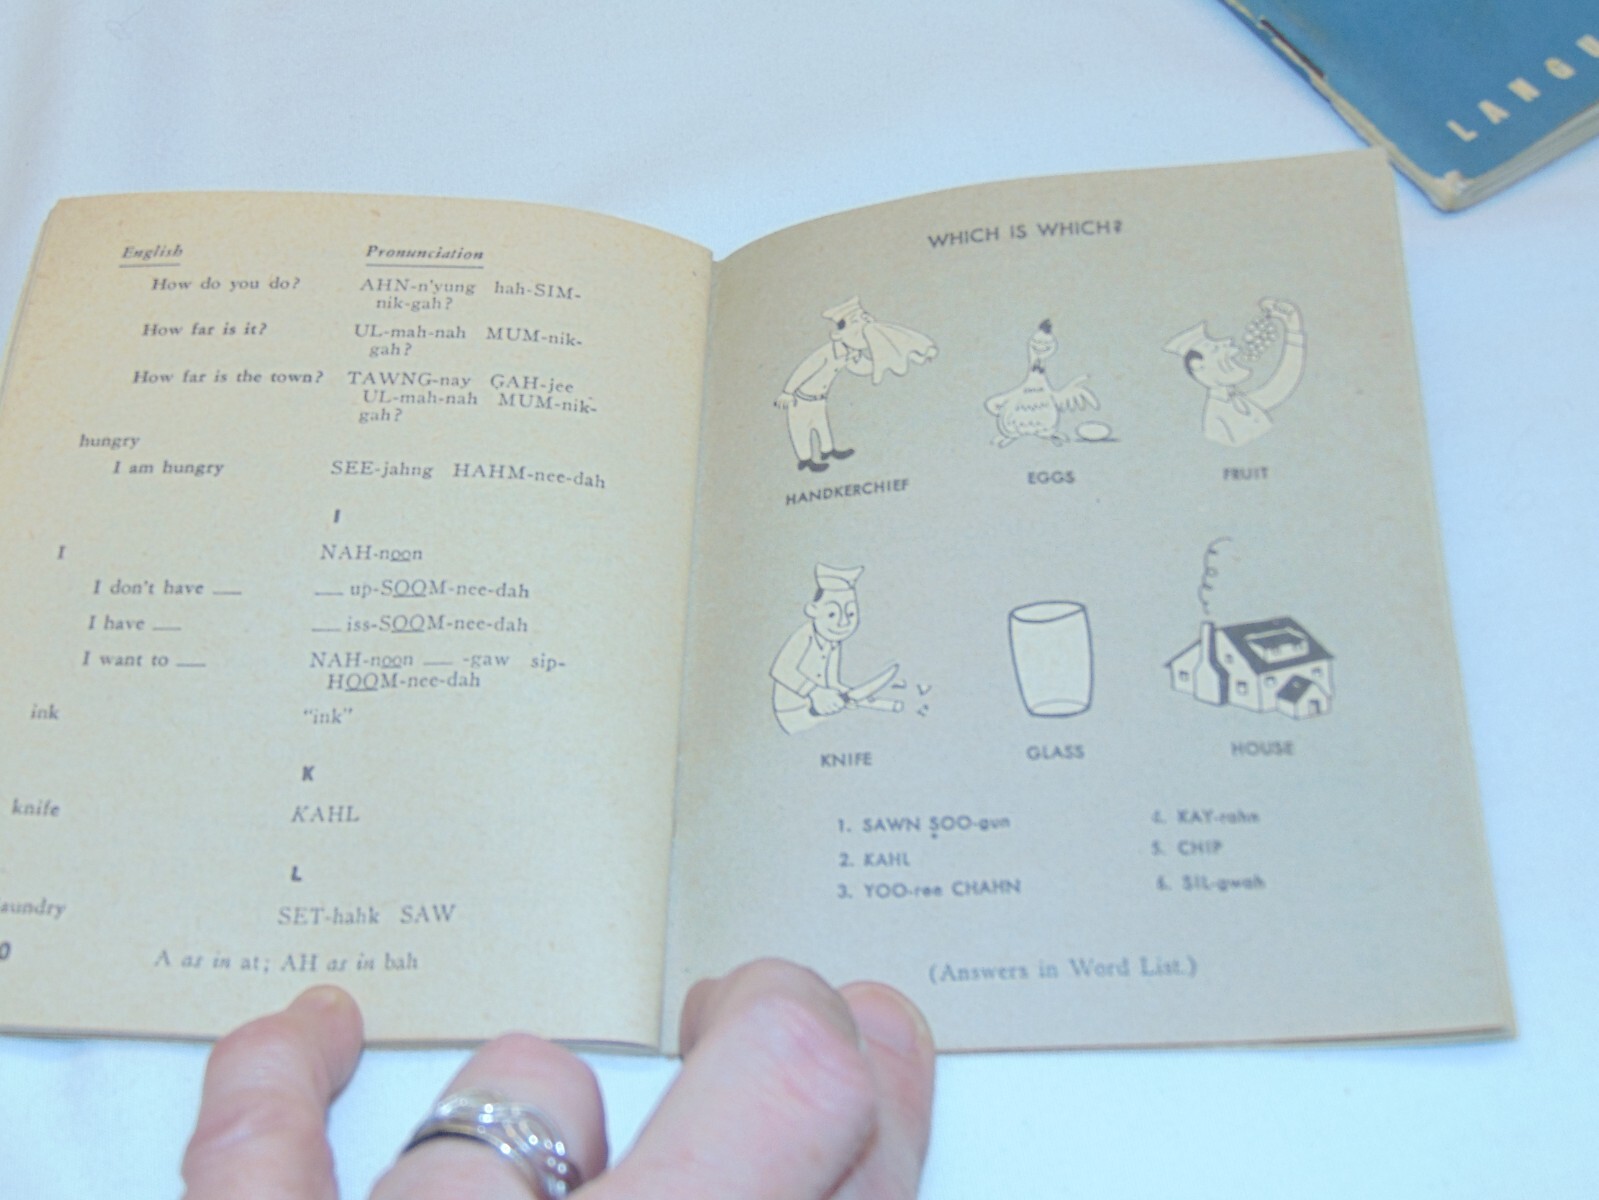 English Pronunciation
How do you do? AHN-n'yung hah-SIM-
nik-gah?
How far is it? UL-mah-nah MUM-nik-
gah?
How far is the town? TAWNG-nay GAH-jee
UL-mah-nah MUM-nik-
gah?
hungry
I am hungry SEE-jahng HAHM-nee-dah
I
I NAH-noon
I don't have __ __ up-SOOM-nee-dah
I have __ __ iss-SOOM-nee-dah
I want to __ NAH-noon __ -gaw sip-
HOOM-nee-dah
ink "ink"
K
knife KAHL
L
aundry SET-hahk SAW
0
A as in at; AH as in bah
WHICH IS WHICH?
HANDKERCHIEF EGGS FRUIT
KNIFE GLASS HOUSE
1. SAWN SOO-gun 4. KAY-rahn
2. KAHL 5. CHIP
3. YOO-ree CHAHN 6. SIL-gwah
(Answers in Word List.)
LANGU